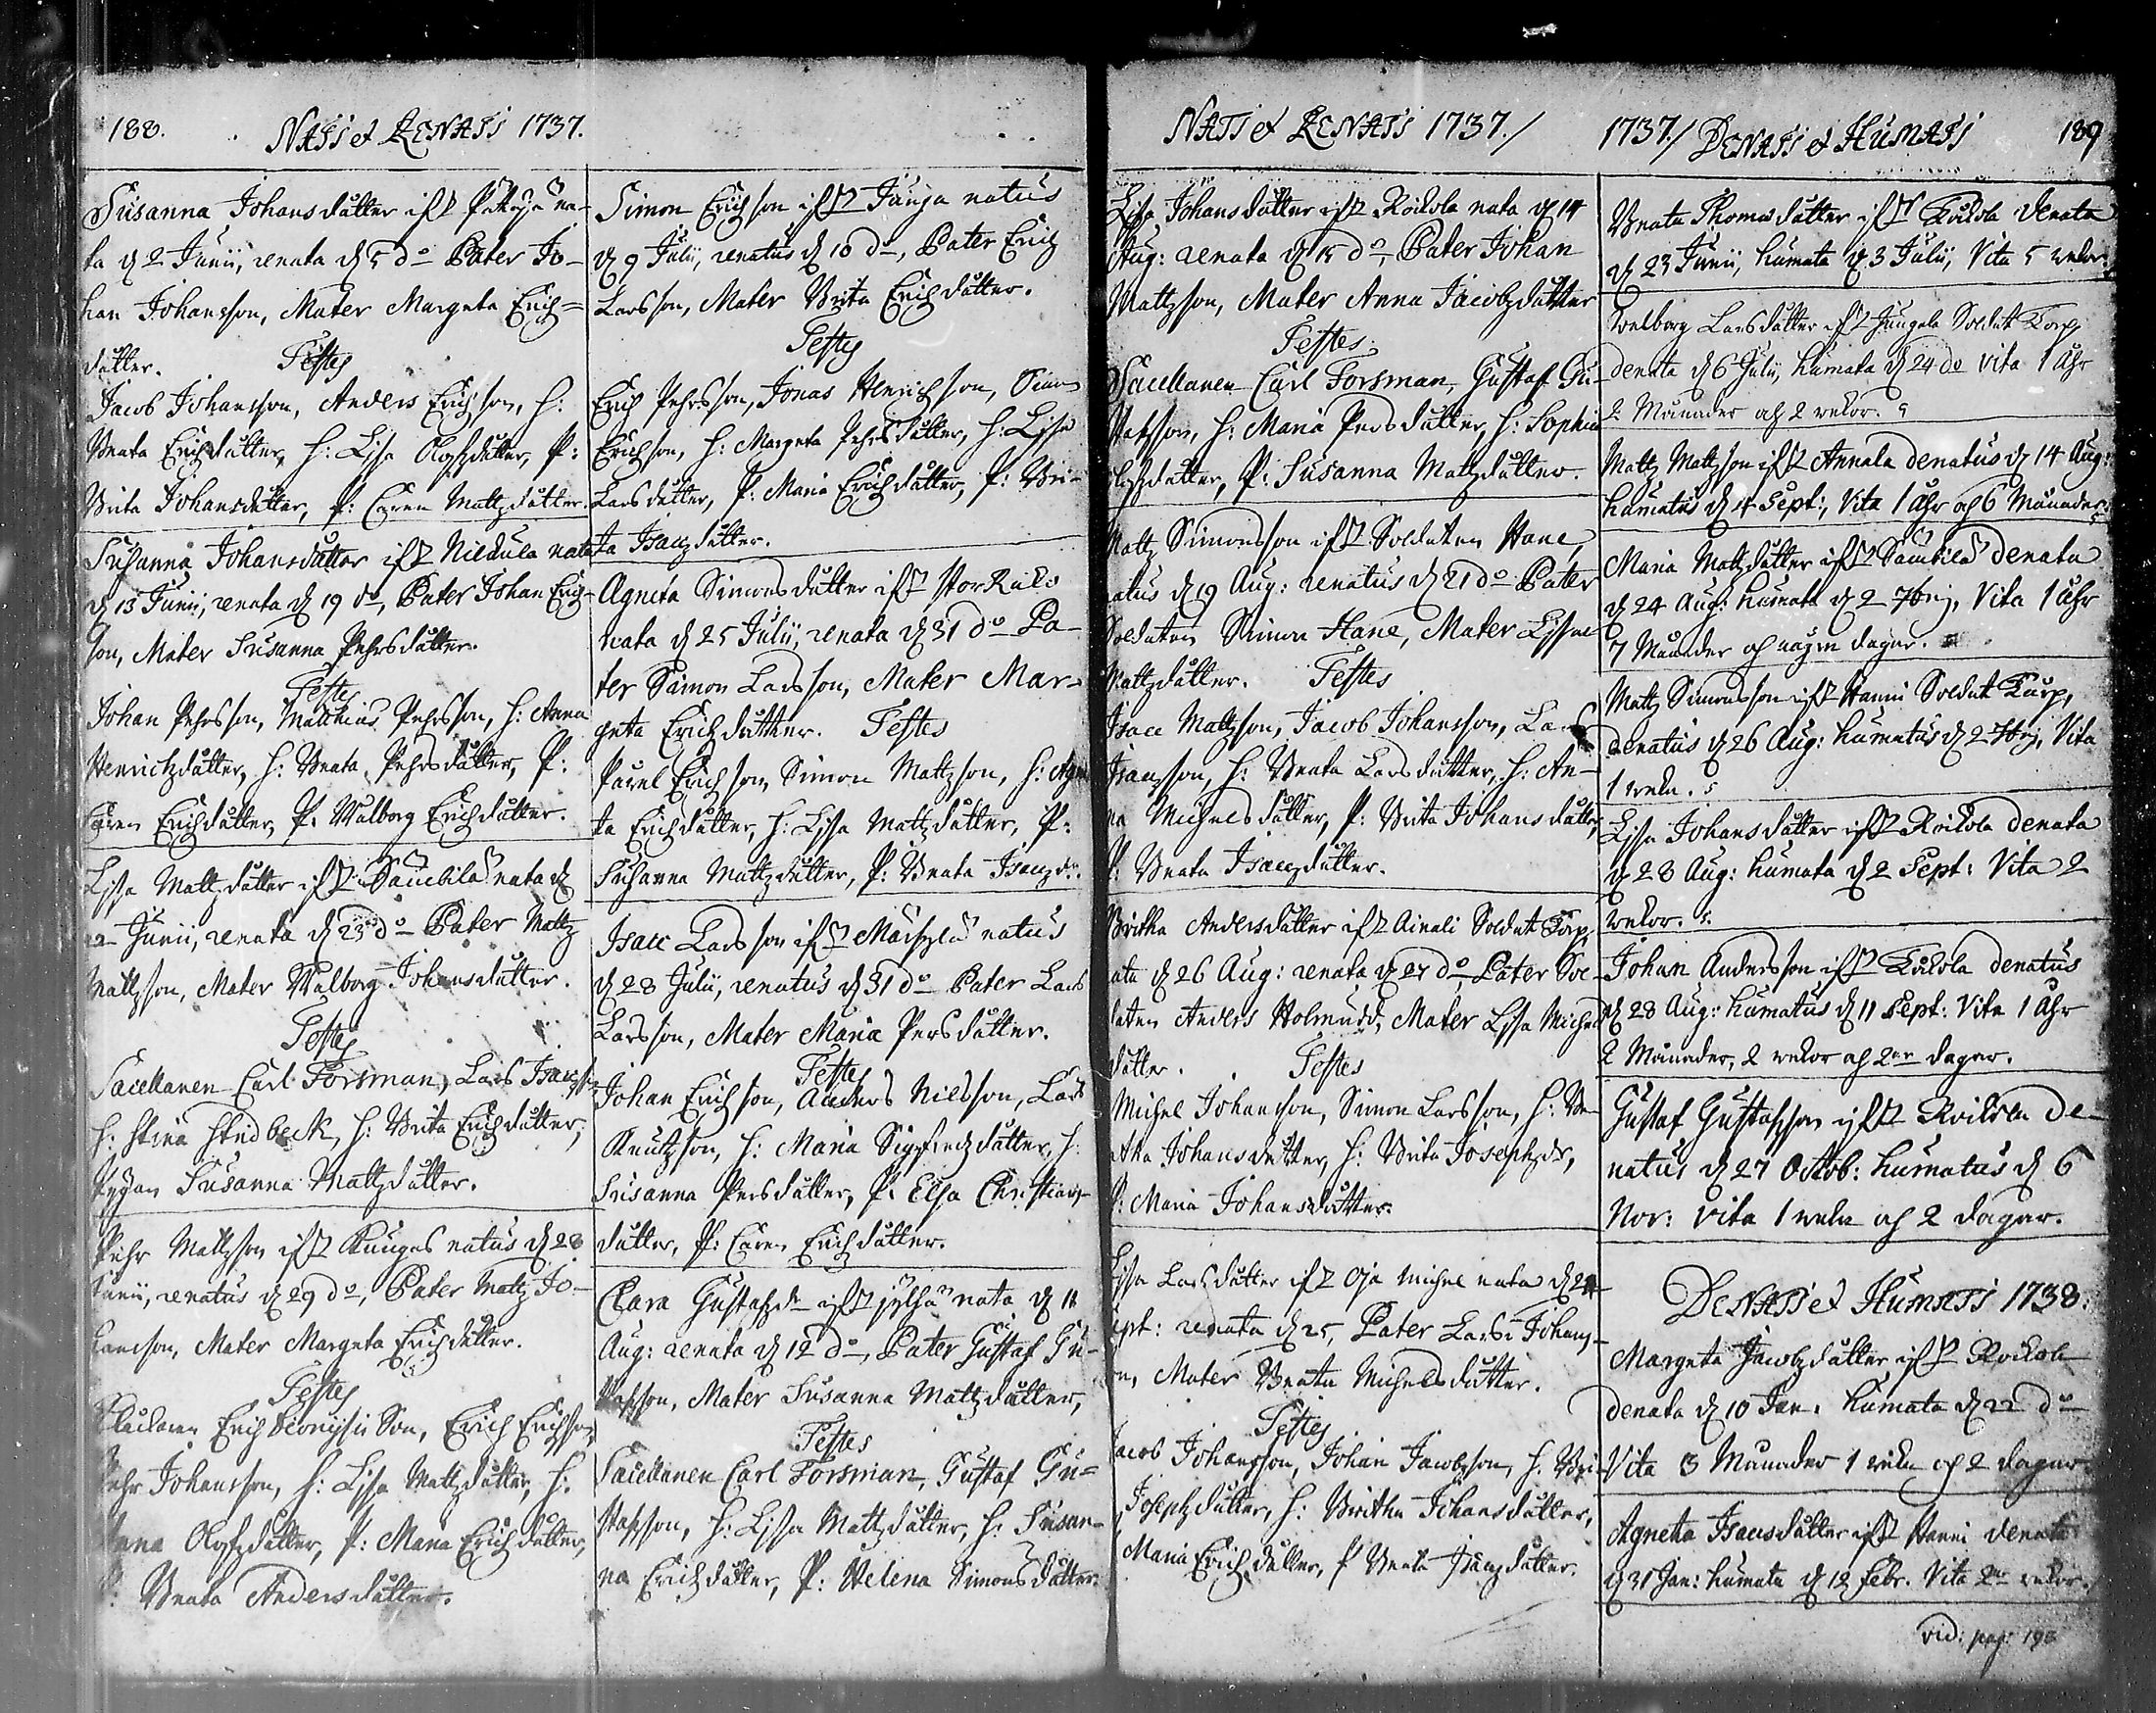 188.
NATI et RENATI 1737.
Susanna Johansdåtter ifr na-
ta d 2 Junii, renata d 5 do Pater Jo-
han Johansson, Mater Margeta Erich-
dåtter. Testes
Jacob Johansson, Anders Erichson, H:
Beata Erichdåtter, H: Lisa Olofzdåtter, P:
Brita Johansdåtter, P: Caren Mattzdåtter.
Susanna Johansdåtter ifr Nickula nata
d 13 Junii, renata d 19 do, Pater Johan Erich-
son, Mater Susanna Pehrsdåtter.
Testes
Johan Pehrsson, Matthias Pehrsson, H: Anna
Henrichzdåtter, H: Beata Pehrsdåtter, P:
Caren Erichdåtter, P: Walborg Erichdåtter.
Lisa Mattzdåtter ifr Säubila nata d
Junii, renata d 23 do Pater Mattz
Mattzson, Mater Walborg Johansdåtter.
Testes
Sacellanen Carl Forsman, Lars Isaczson
H: Stina Stidbeck, H: Brita Erichdåtter,
Pigan Susanna Mattzdåtter.
Pehr Mattzson ifr Knugas natus d 28
Junii, renatus d 29 do, Pater Mattz Jo-
hansson, Mater Margeta Erichdåtter.
Testes
Klåckaren Erich Dionysii Son, Erich Erichson,
Pehr Johansson, H: Lisa Mattzdåtter, H:
Anna Olofzdåtter, P: Maria Erichdåtter,
P: Beata Andersdåtter.
Simon Erichson ifr Tauja natus
d 9 Julii, renatus d 10 do, Pater Erich
Larsson, Mater Brita Erichdåtter.
Testes
Erich Pehrsson, Jonas Henrichson, Simon
Erichson, H: Margeta Pehrsdåtter, H: Lisa
Larsdåtter, P: Maria Erichdåtter, P: Bri-
ta Isaczdåtter.
Agneta Simonsdåtter ifr
nata d 25 Julii, renata d 31 do Pa-
ter Simon Larsson, Mater Mar-
geta Erichdåtter. Testes
Pavel Erichson, Simon Mattzson, H: Agne-
ta Erichdåtter, H: Lisa Mattzdåtter, P:
Susanna Mattzdåtter, P: Beata Isaczdr.
Isacc Larsson ifr natus
d 28 Julii, renatus d 31 do Pater Lars
Larsson, Mater Maria Persdåtter.
Testes
Johan Erichson, Anders Nilsson, Lars
Knutzson, H: Maria Sigfredzdåtter, H:
Susanna Persdåtter, P: Elsa Christians-
dåtter, P: Caren Erichdåtter.
Clara Gustafzdr ifr Jylhä nata d 11
Aug: renata d 12 do, Pater Gustaf Gu-
stafson, Mater Susanna Mattzdåtter,
Testes
Sacellanen Carl Forsman, Gustaf Gu-
stafson, H: Lisa Mattzdåtter, H: Susan-
na Erichdåtter, P: Helena Simonsdåtter.
NATI et RENATI 1737./
Lisa Johansdåtter ifr Roikola nata d 14
Aug: renata d 15 do, Pater Johan
Mattzson, Mater Anna Jacobzdåtter
Testes
Sacellanen Carl Forsman, Gustaf Gu-
stafson, H: Maria Persdåtter, H: Sophia
Olofzdåtter, P: Susanna Mattzdåtter.
Mattz Simonsson ifr Soldaten Hane,
natus d 19 Aug: renatus d 21 do Pater
Soldaten Simon Hane, Mater Lisa
Mattzdåtter. Testes
Isacc Mattzson, Jacob Johansson, Lars
Isaczson, H: Beata Larsdåtter, H: An-
na Michelsdåtter, P: Brita Johansdåtter,
P: Beata Isaczdåtter.
Britha Andersdåtter ifr Ainali Soldat Torp,
nata d 26 Aug: renata d 27 do, Pater Sol-
daten Anders Holmudd, Mater Lisa Michels
dåtter. Testes
Michel Johansson, Simon Larsson, H: Be-
atha Johansdåtter, H: Brita Josephzdr,
P: Maria Johansdåtter.
Lisa Larsdåtter ifr Oja Michel nata d 24
Sept: renata d 25, Pater Lars Johans-
son, Mater Beata Michelsdåtter.
Testes
Jacob Johansson, Johan Jacobzson, H: Bri-
Josephzdåtter, H: Britha Johansdåtter,
Maria Erichdåtter, P Beata Isaczdåtter.
1737./ DENATI et HUMATI 189
Beata Thomasdåtter ifr Kåckola denata
d 23 Junii, humata d 3 Julii, Vita 5 wekor.
Walborg Larsdåtter ifr Jungala Soldat Torp,
denata d 6 Julii, humata d 24 do vita 1 Ahr
2 Månader och 2 wekor.
Mattz Mattzson ifr Annala denatus d 14 Aug:
humatus d 4 Sept:, Vita 1 Ahr och 6 Månader.
Maria Mattzdåtter ifr Säubila denata
d 24 Aug: humata d 2 7brij, Vita 1 Ahr
7 Månader och någre dagar.
Mattz Simonsson ifr Hanni Soldat Torp,
denatus d 26 Aug: humatus d 2 7brij, Vita
1 weka.
Lisa Johansdåtter ifr Roikola denata
d 28 Aug: humata d 2 Sept: Vita 2
wekor.
Johan Andersson ifr Kåckola denatus
d 28 Aug: humatus d 11 Sept: Vita 1 Ahr
2 Månader, 2 wekor och 2ne dagar.
Gustaf Gustafson ifr Roikola de-
natus d 27 Octob: humatus d 6
Nov: vita 1 weka och 2 dagar.
DENATI et HUMATI 1738.
Margeta Jacobzdåtter ifr Roikola
denata d 10 Jan. humata d 22 do
Vita 3 Månader 1 weka och 2 dagar.
Agneta Isacsdåtter ifr Hanni denata
d 31 Jan: humata d 12 Febr. Vita 2ne wekor.
vid: pag: 195